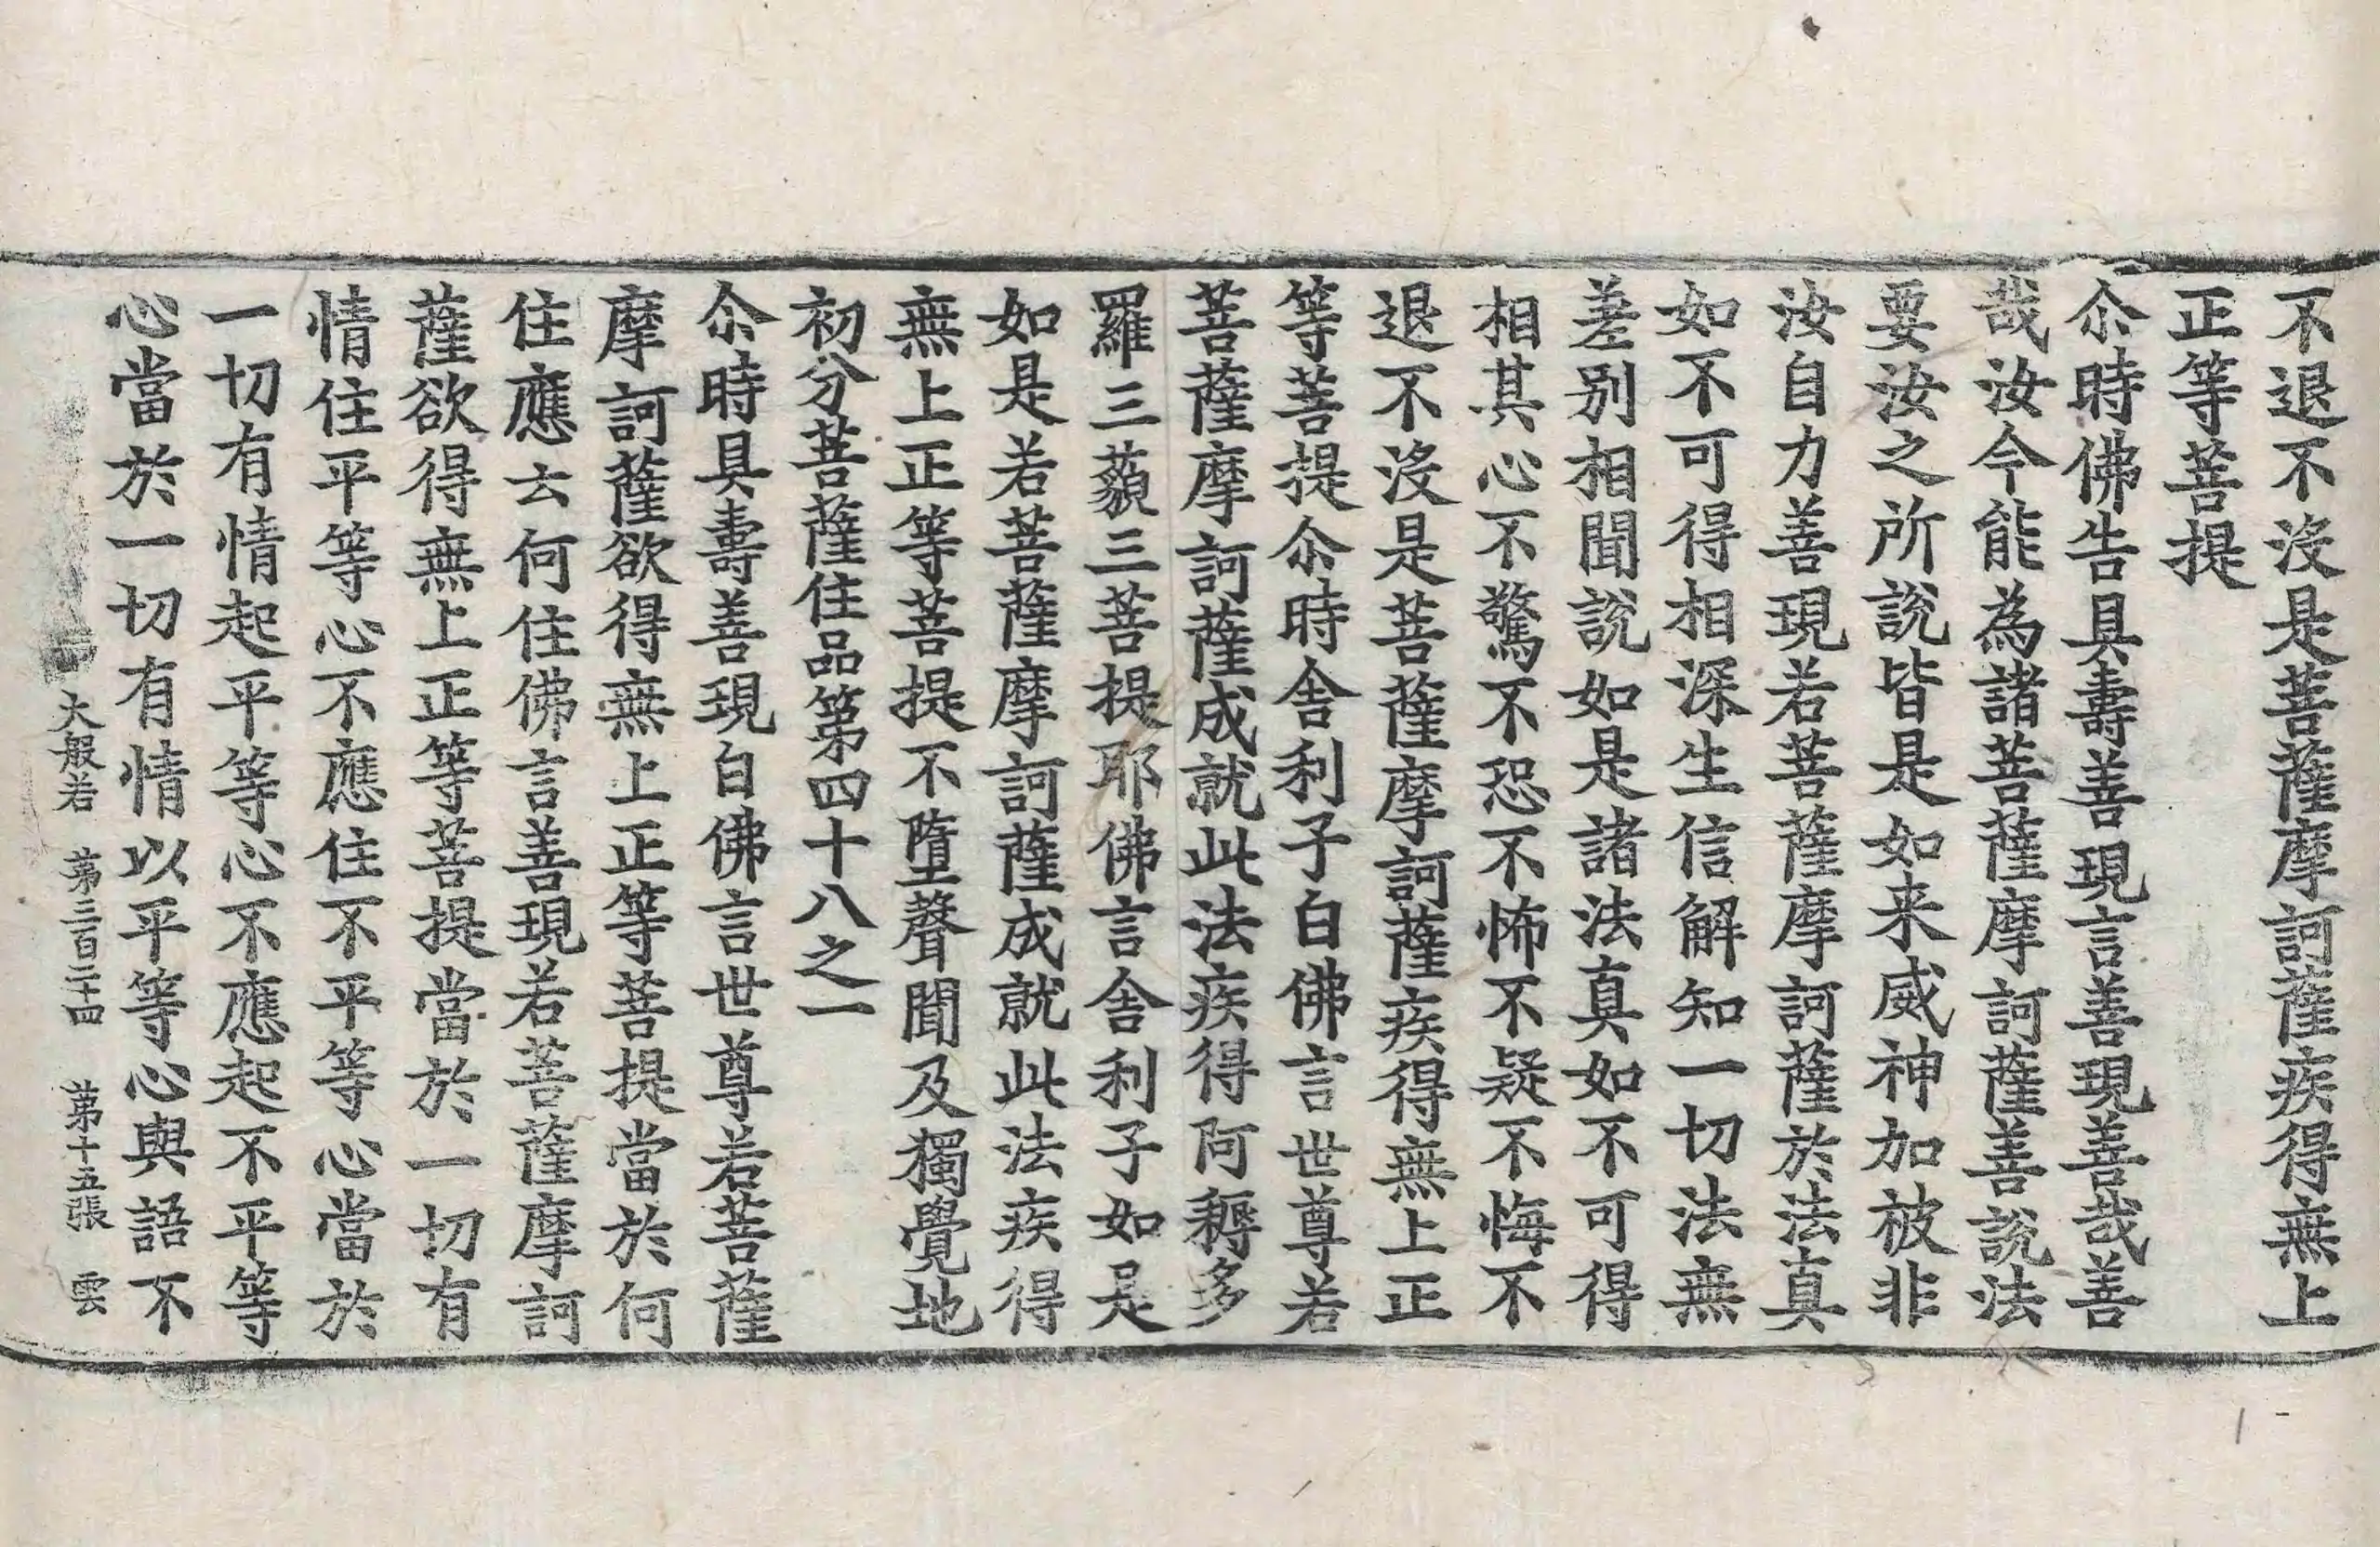 不退不没是菩薩摩訶薩疾得無上
正等菩提
尒時佛告具壽善現言善現善哉善
哉汝今能為諸菩薩摩訶薩善說法
要汝之所說皆是如来威神加被非
汝自力善現若菩薩摩訶薩於法真
如不可得相深生信解知一切法無
差别相聞說如是諸法真如不可得
相其心不驚不恐不怖不疑不悔不
退不没是菩薩摩訶薩疾得無上正
等菩提尒時舍利子白佛言世尊若
菩薩摩訶薩成就此法疾得阿耨多
羅三藐三菩提耶佛言舍利子如是
如是若菩薩摩訶薩成就此法疾得
無上正等菩提不墮聲聞及獨覺地
初分菩薩住品第四十八之一
尒時具壽善現白佛言世尊若菩薩
摩訶薩欲得無上正等菩提當於何
住應云何住佛言善現若菩薩摩訶
薩欲得無上正等菩提當於一切有
情住平等心不應住不平等心當於
一切有情起平等心不應起不平等
心當於一切有情以平等心與語不
大般若 第三百二十四 第十五張 雲